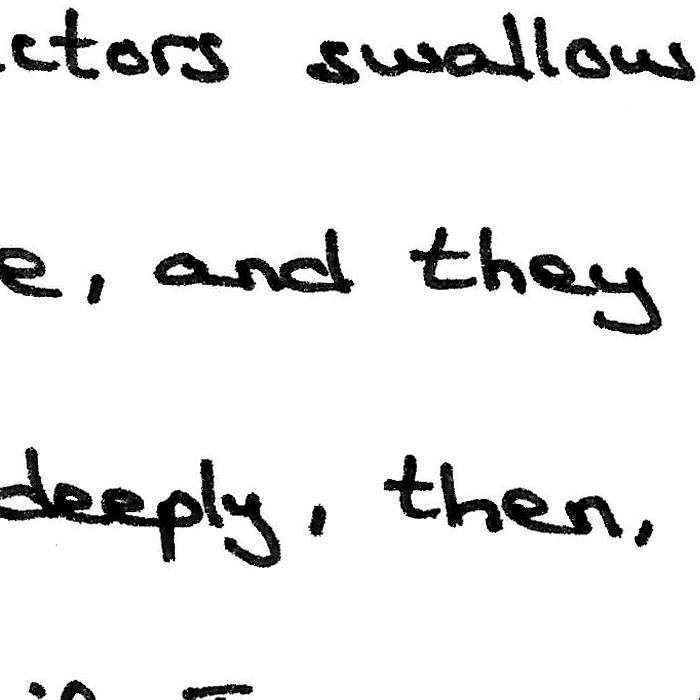 ctors swallow
e, and they
deeply, then,